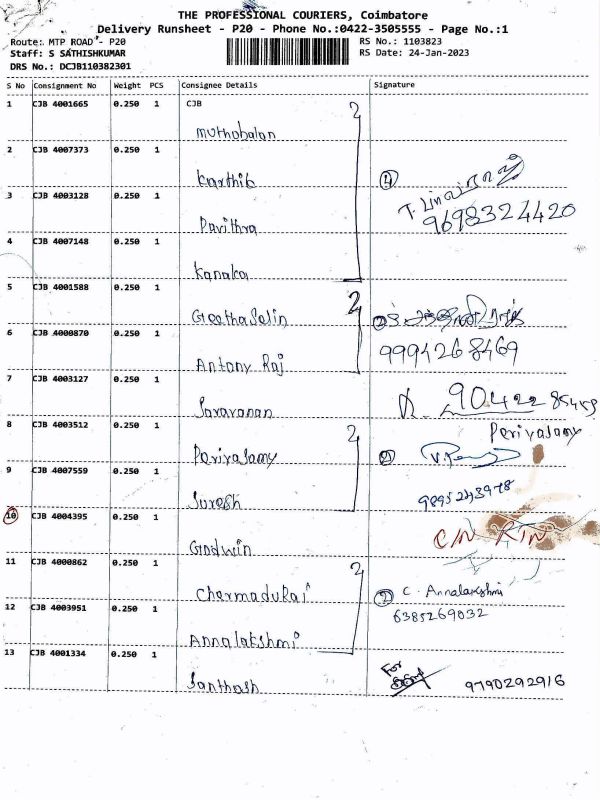 THE PROFESSIONAL COURIERS, Coimbatore
Delivery Runsheet - P20 - Phone No.:0422-3505555 - Page No.:1
Route: MTP ROAD - P20
RS No.: 1103823
Staff: S SATHISHKUMAR
RS Date: 24-Jan-2023
DRS No.: DCJB110382301
S No Consignment No Weight PCS Consignee Details Signature
1 CJB 4001665 0.250 1 CJB 2
muthobalan
2 CJB 4007373 0.250 1
Karthik ④
3 CJB 4003128 0.250 1
Pavithra 9698324420
4 CJB 4007148 0.250 1
Kanaka
5 CJB 4001588 0.250 1 2
GeethaSelin ②
6 CJB 4000870 0.250 1 9994268469
Antony Raj
7 CJB 4003127 0.250 1
Saravanan
8 CJB 4003512 0.250 1 2 Periyasamy
Periyasamy ②
9 CJB 4007559 0.250 1
Suresh
10 CJB 4004395 0.250 1
Godwin C/N R/N
11 CJB 4000862 0.250 1 2
ChermaduRai ② C. Annalakshmi
12 CJB 4003951 0.250 1 6385269032
Annalakshmi
13 CJB 4001334 0.250 1 For
Santhosh 9790292916